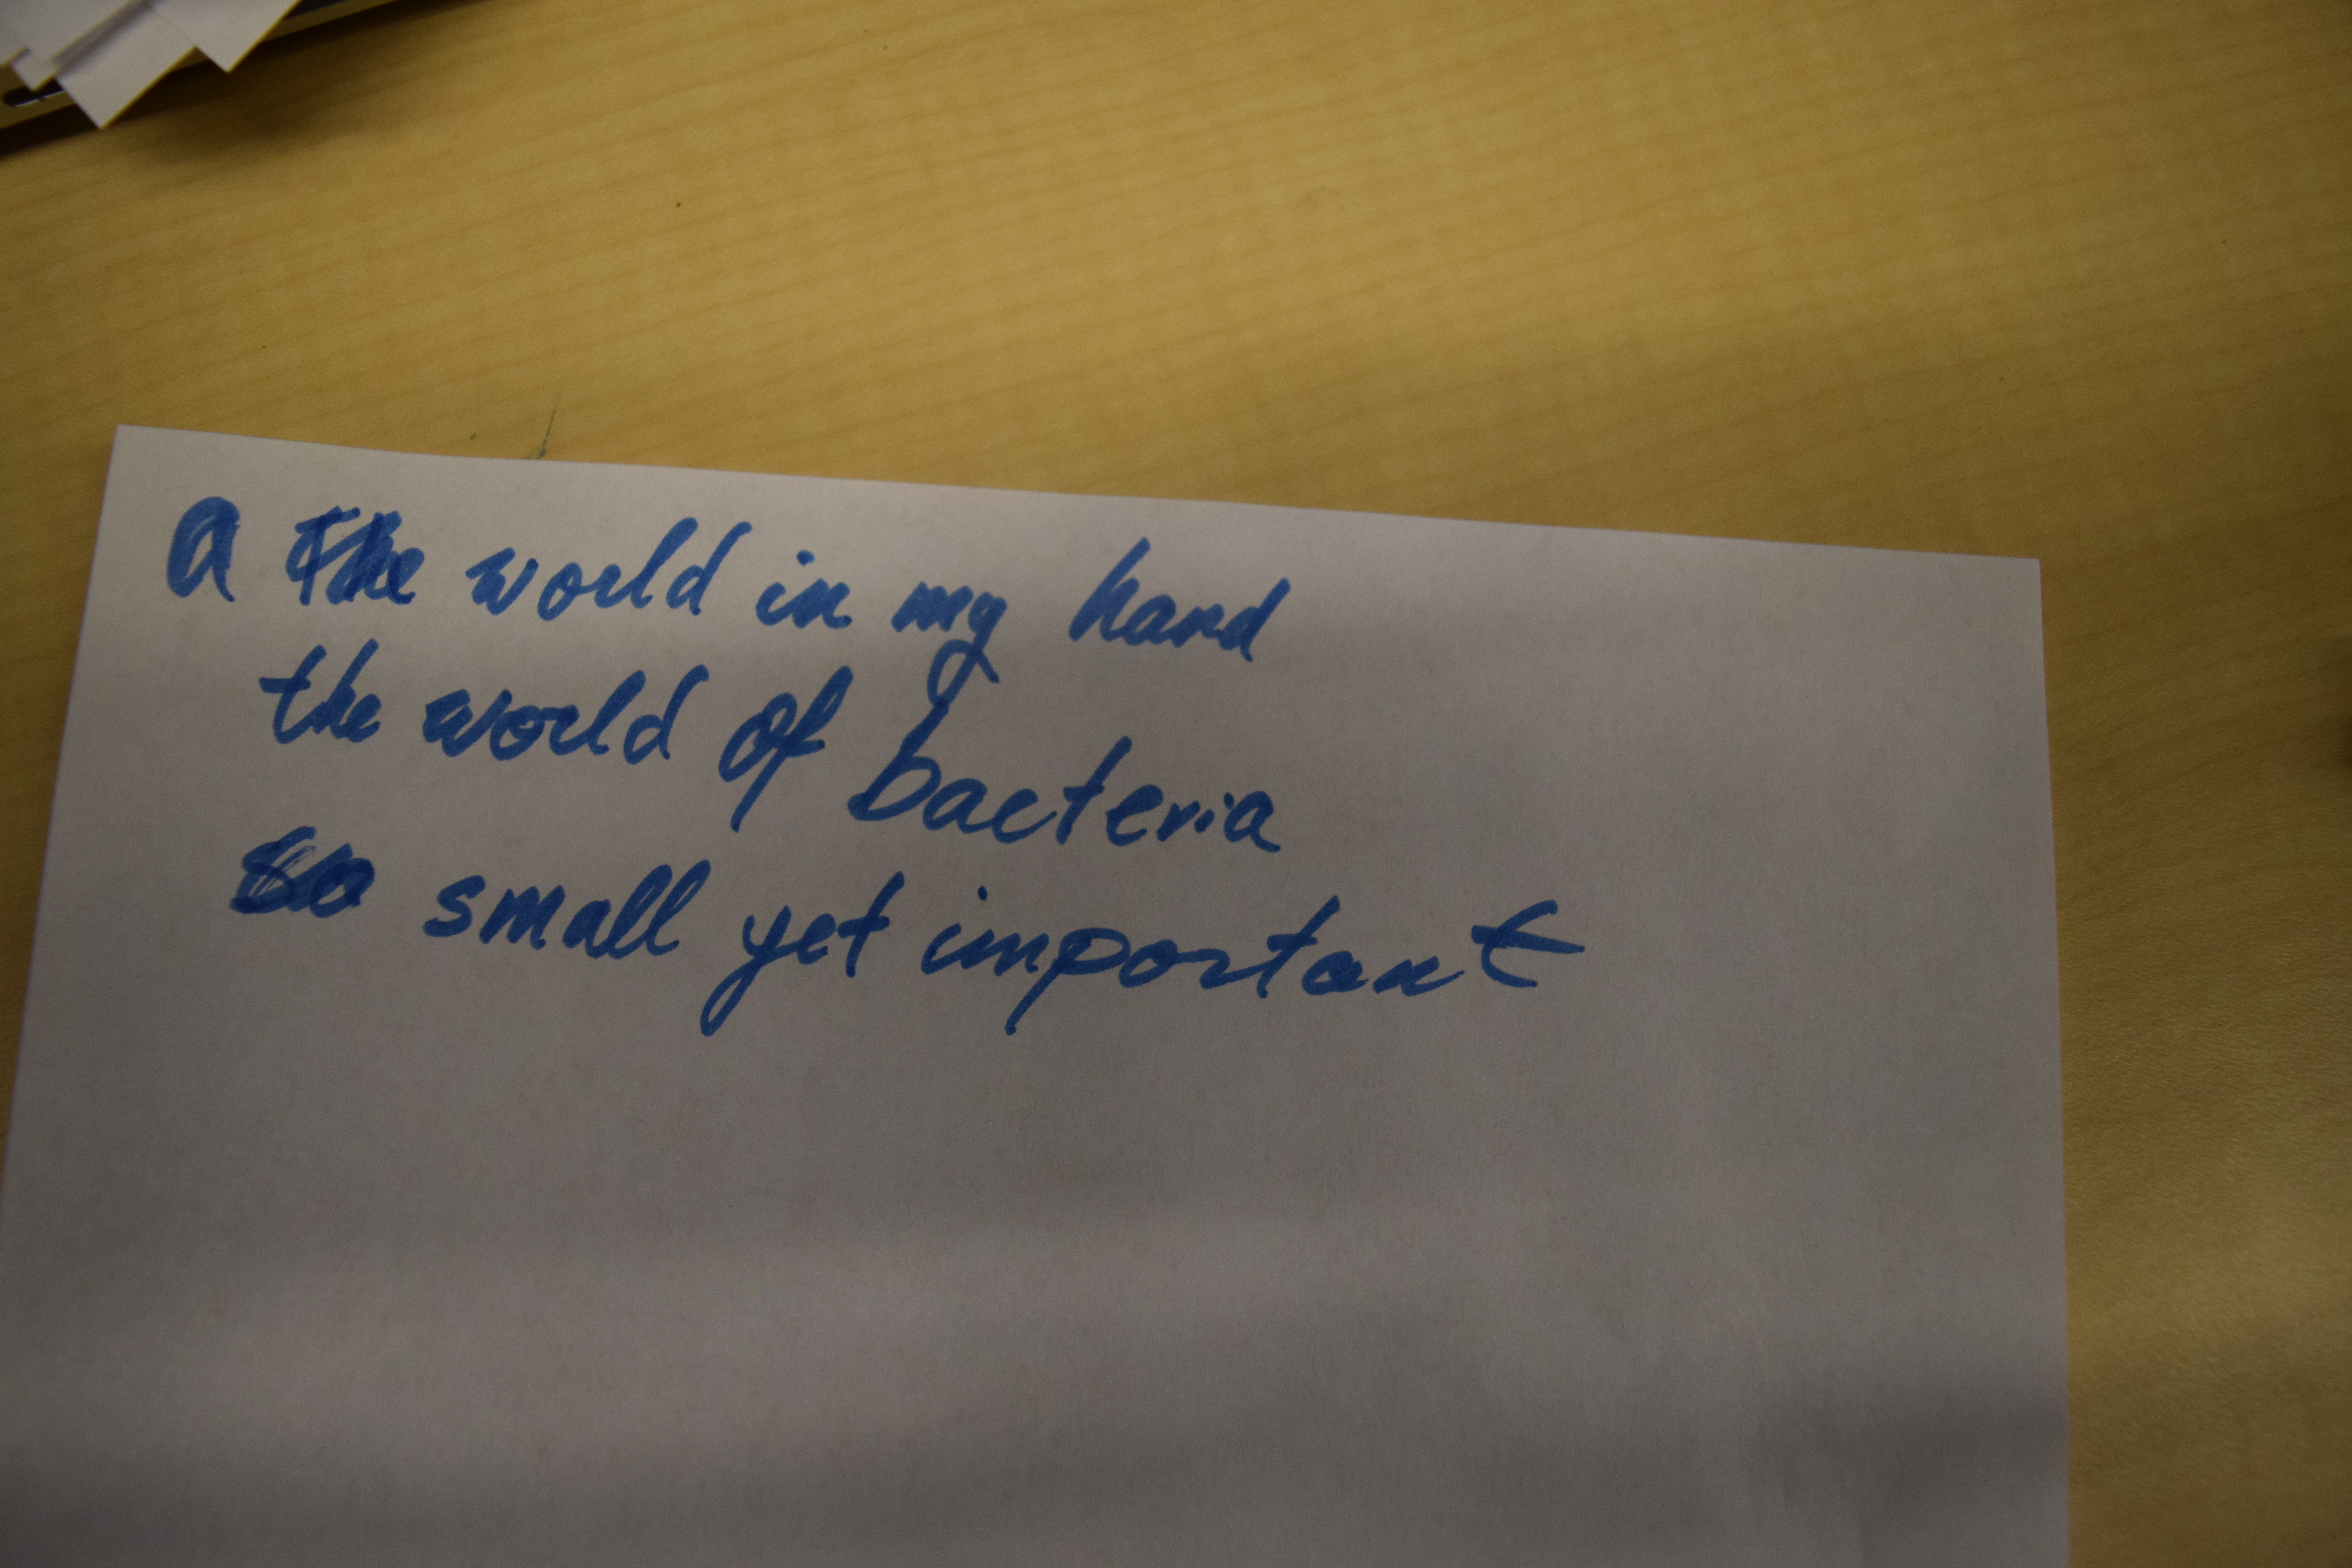 a The world in my hand
the world of bacteria
so small yet important